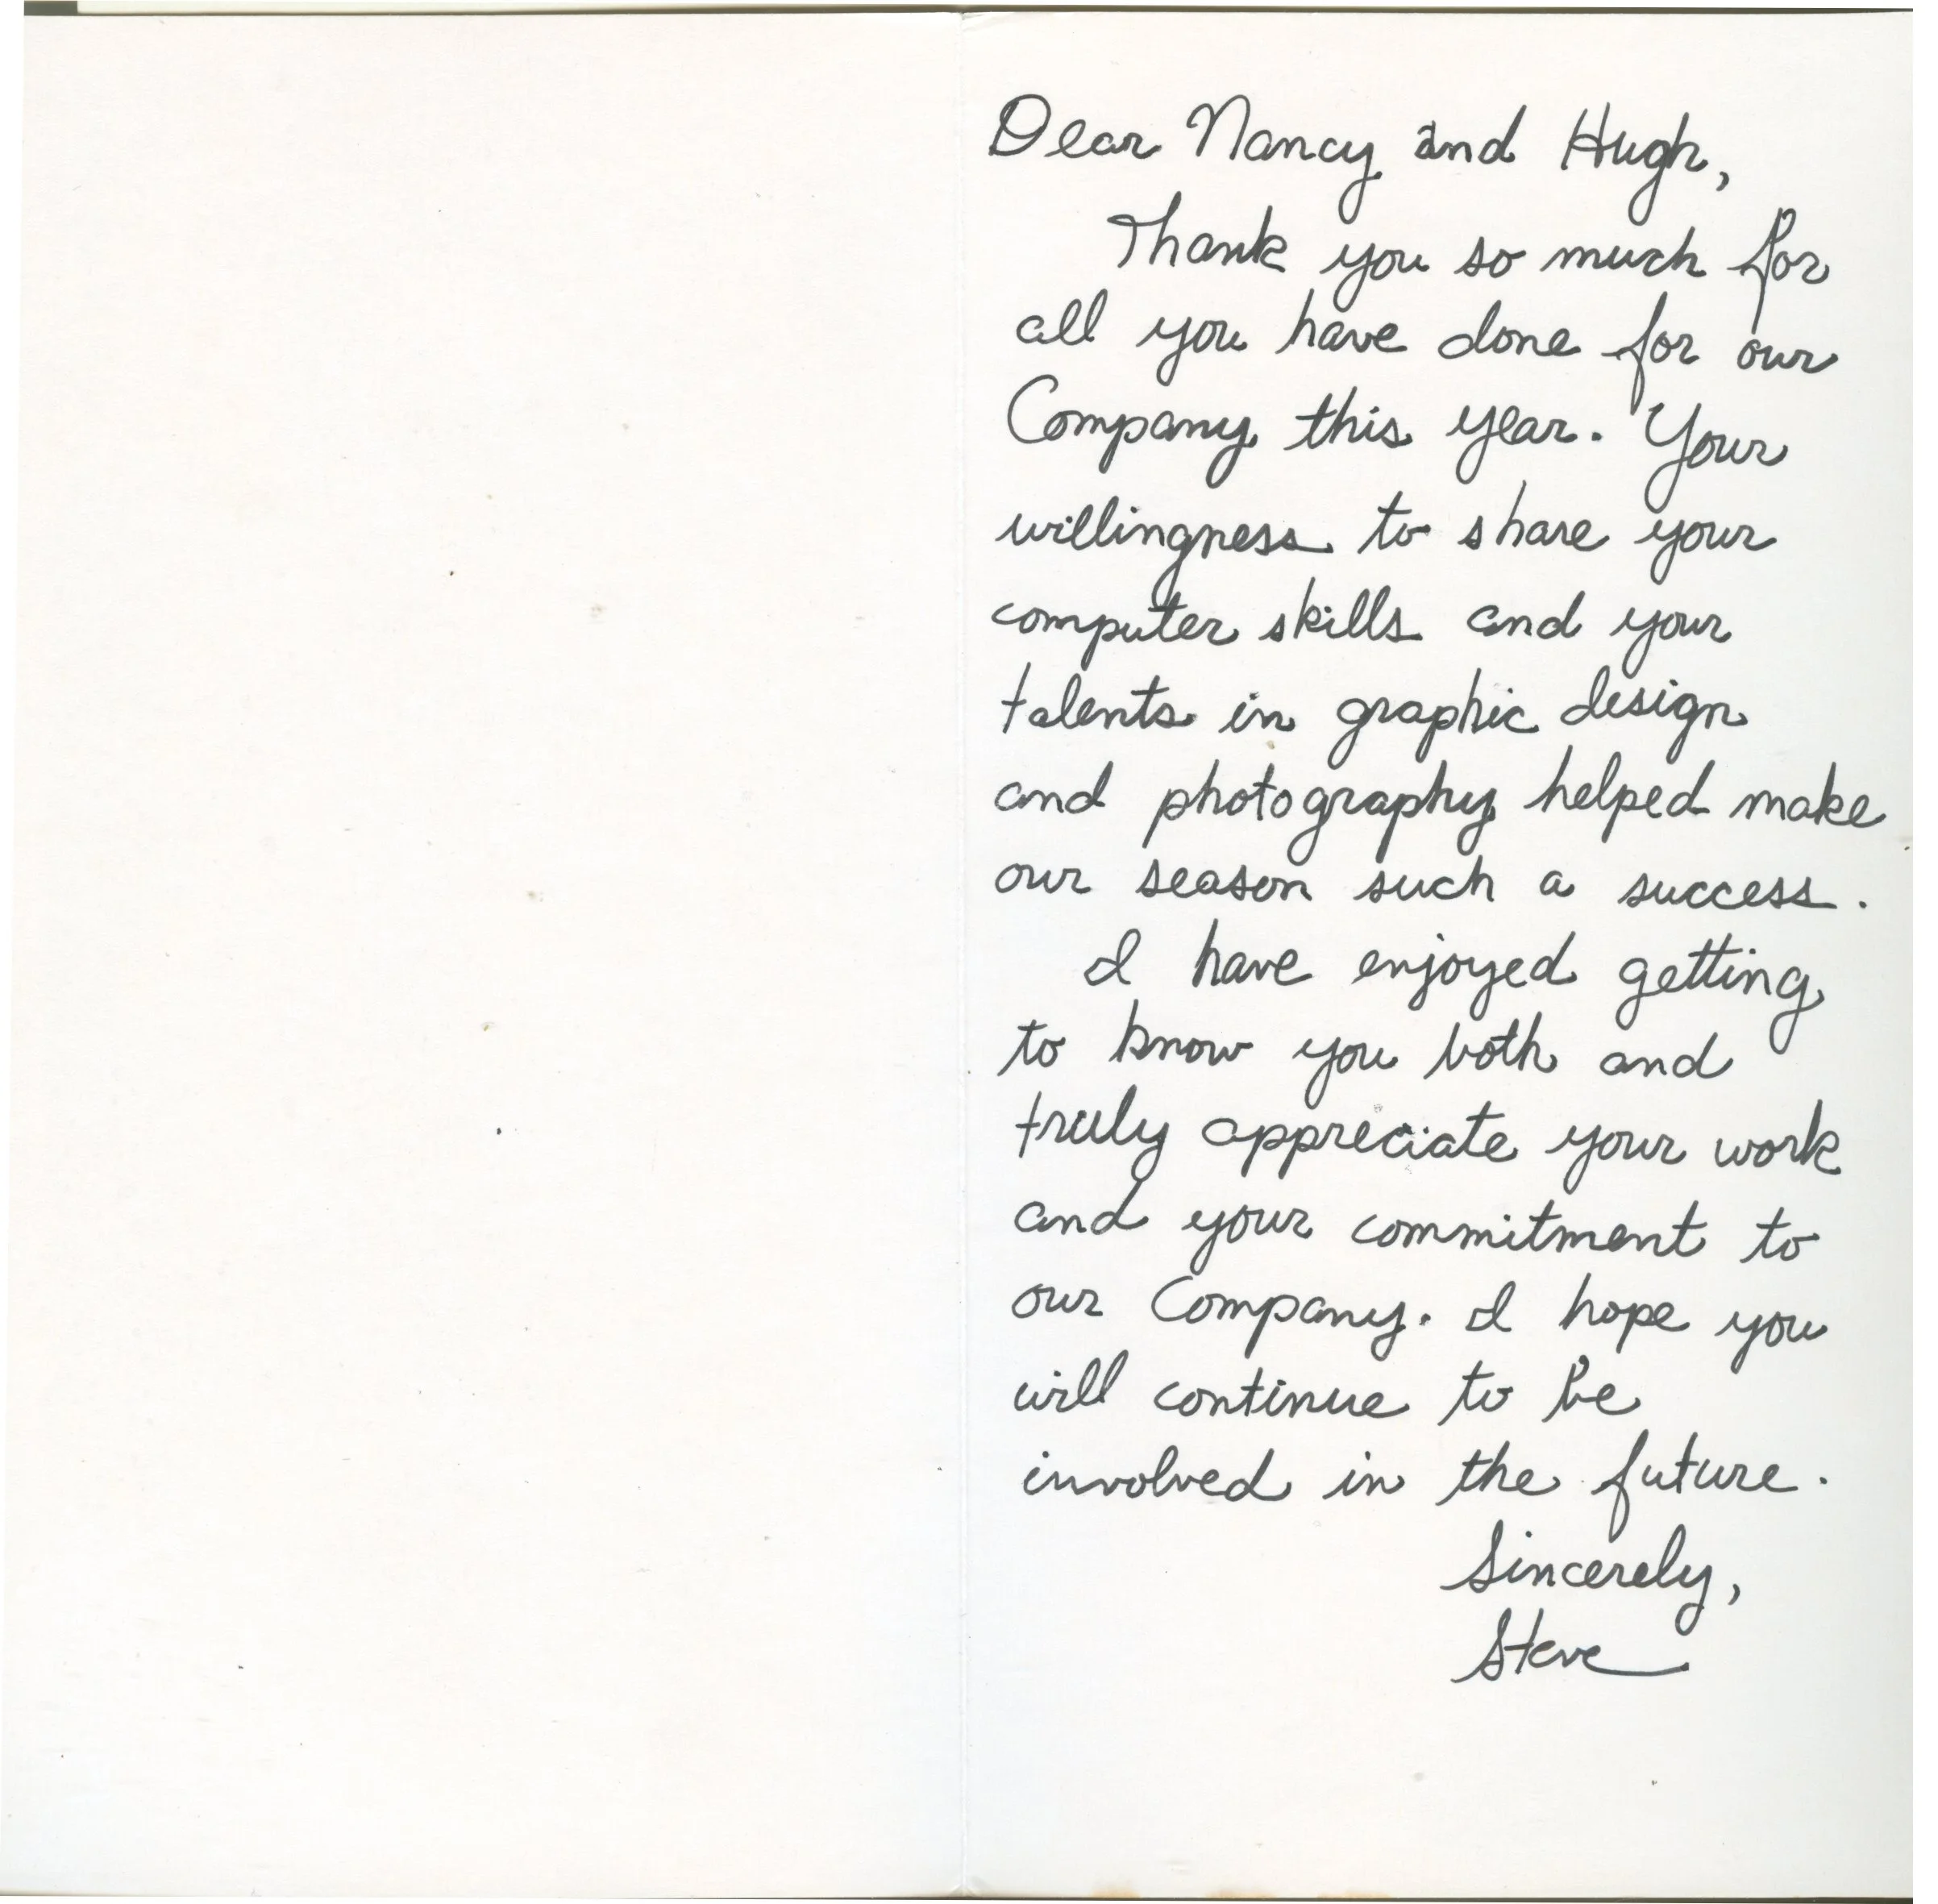 Dear Nancy and Hugh,
Thank you so much for
all you have done for our
Company this year. Your
willingness to share your
computer skills and your
talents in graphic design
and photography helped make
our season such a success.
I have enjoyed getting
to know you both and
truly appreciate your work
and your commitment to
our Company. I hope you
will continue to be
involved in the future.
Sincerely,
Steve